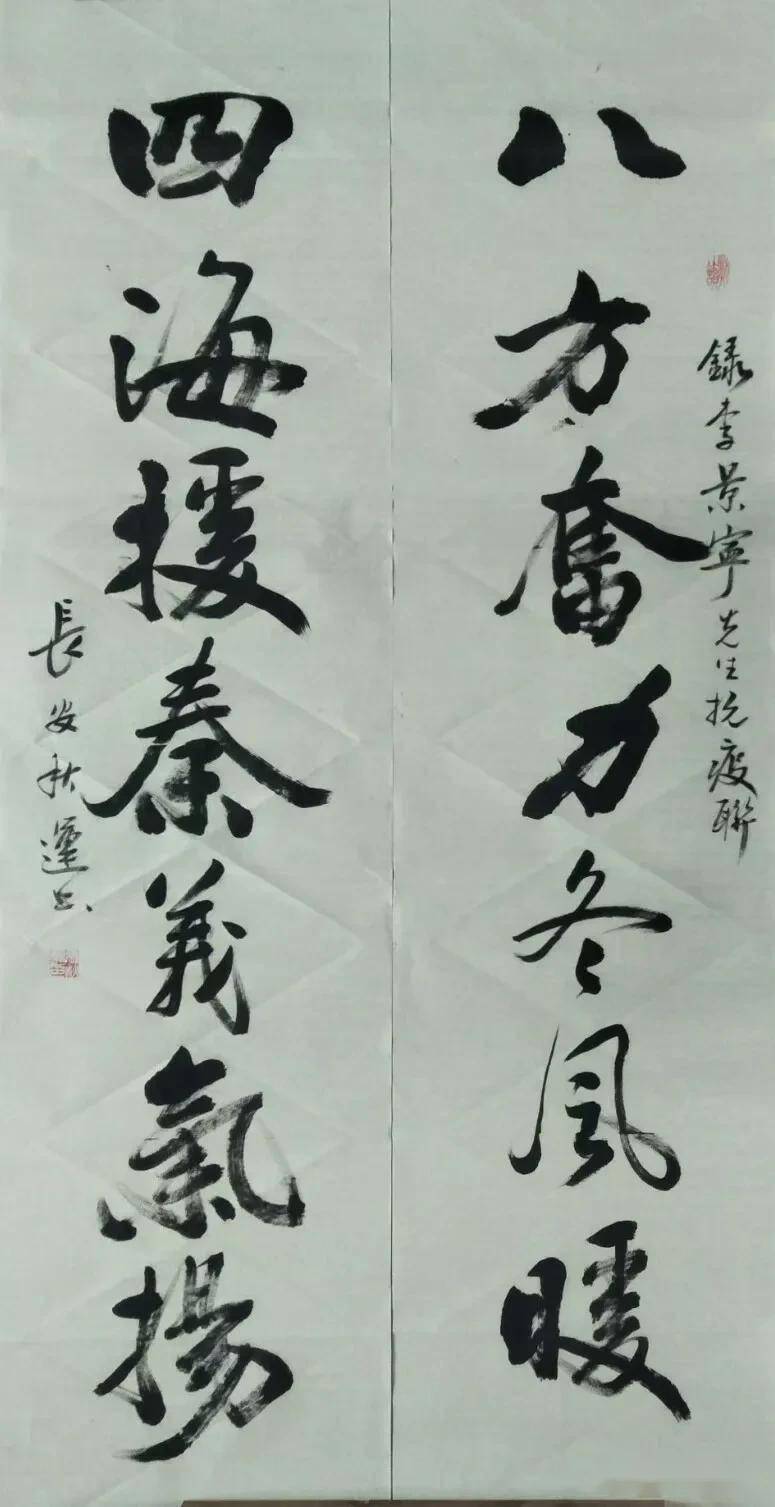 八方奮力冬風暖
錄李景寧先生抗疫聯
四海援秦義氣揚
長安秋蓮書